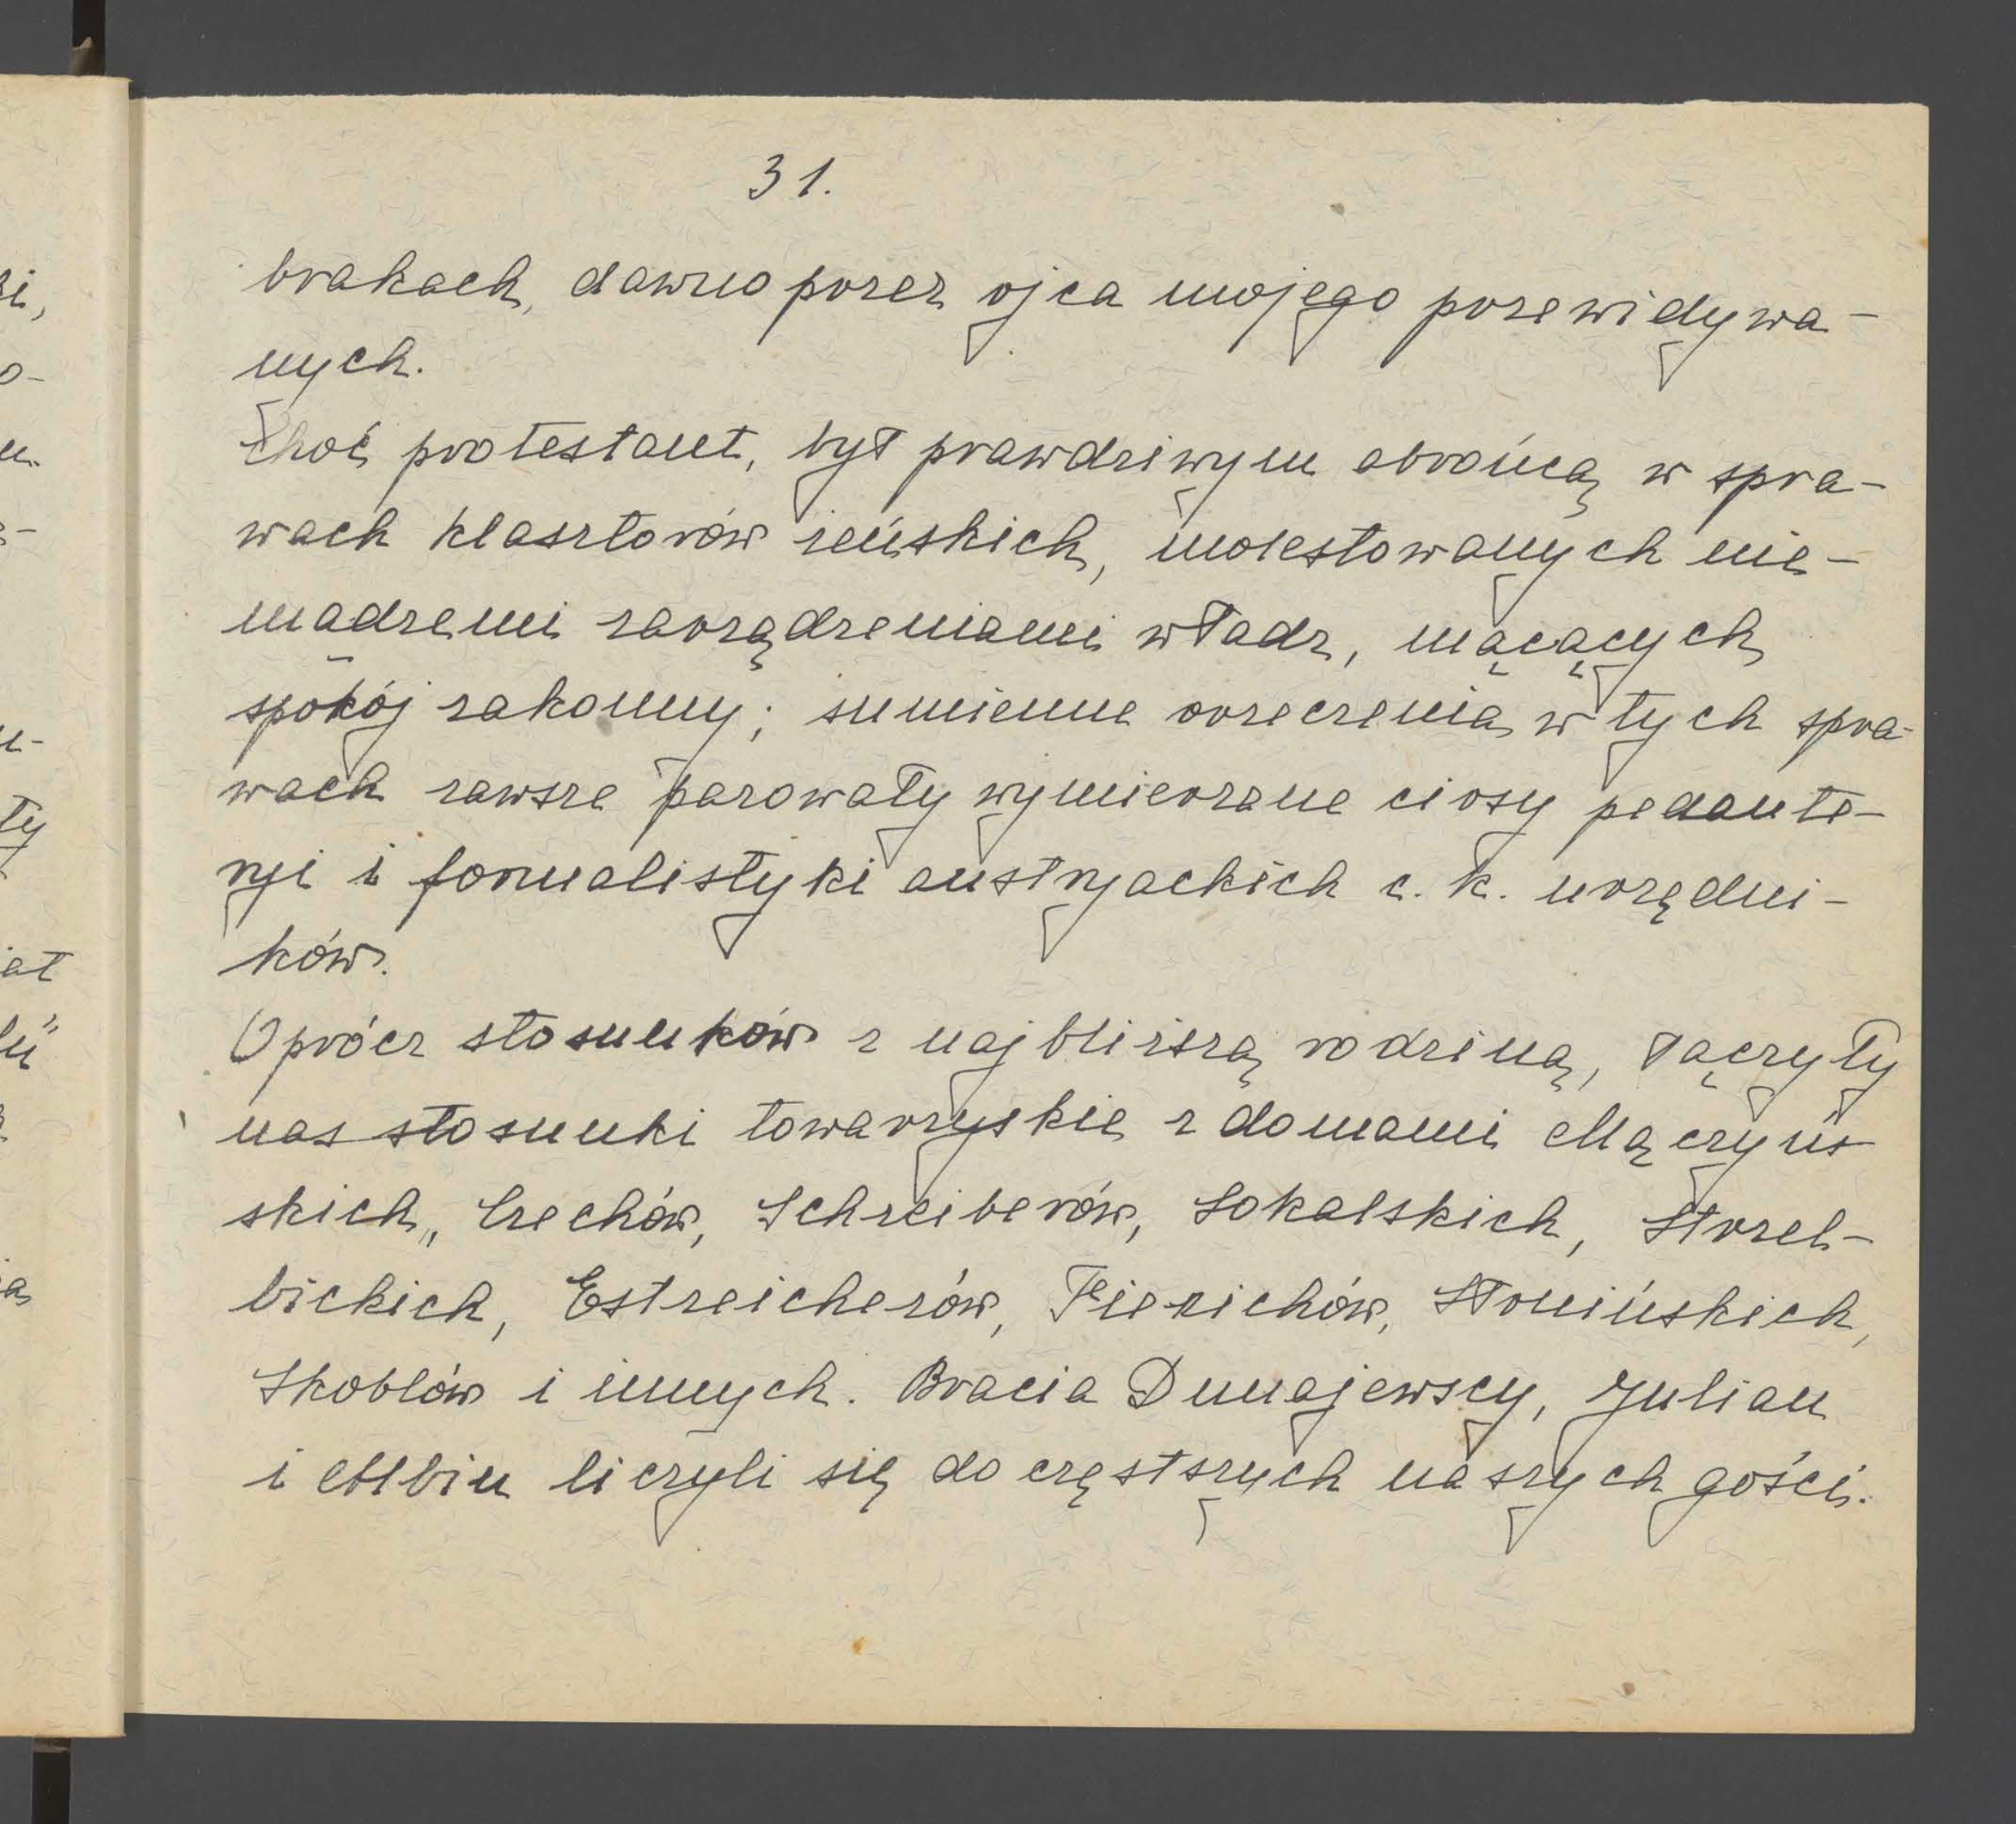 31.
brakach, dawno przez ojca mojego przewidywa-
nych.
Choć protestant, był prawdziwym obrońcą w spra-
wach klasztorów żeńskich, molestowanych nie-
mądremi zarządzeniami władz, mącących
spokój zakonny; sumienne orzeczenia w tych spra-
wach zawsze parowały wymierzane ciosy pedante-
rji i formalistyki austrjackich c. k. urzędni-
ków.
Oprócz stosunków z najbliższą rodziną, łączyły
nas stosunki towarzyskie z domami Mączyń-
skich, Czechów, Schreiberów, Sokalskich, Strzel-
bickich, Estreicherów, Fierichów, Słonińskich,
Skoblów i innych. Bracia Dunajewscy, Julian
i Albin liczyli się do częstszych naszych gości.